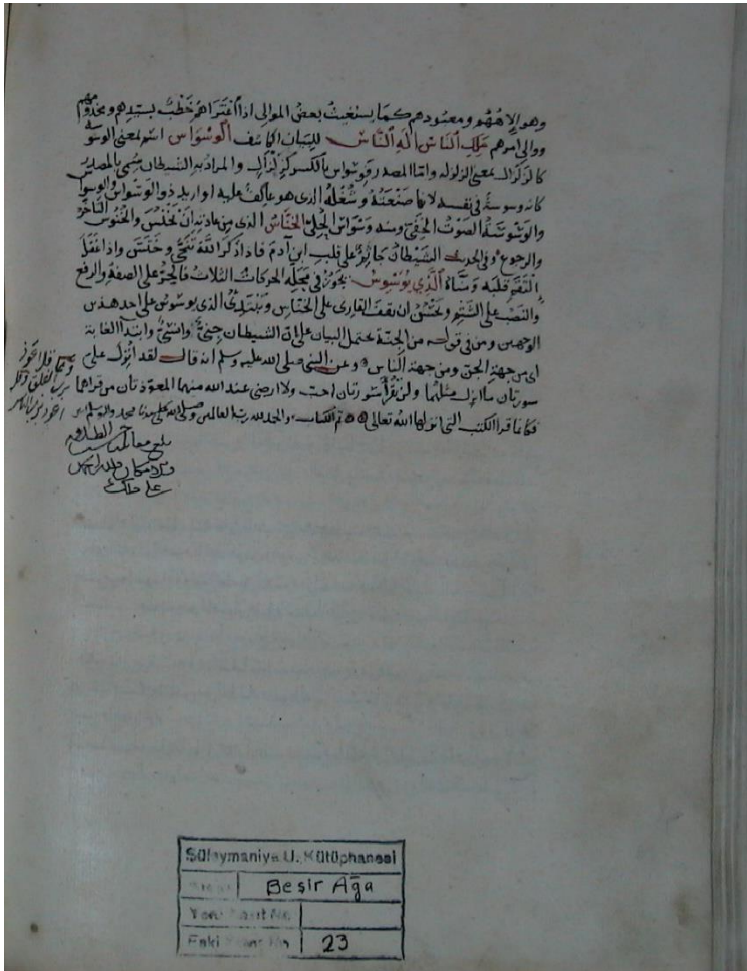 وهو إلاههم ومعبودهم كما يستغيث بعض الموالى اذا اعتراهم خطب بسيدهم ومخدومهم
ووالى امرهم ملك الناس اله الناس للبيان الوسواس اسم بمعنى الوسوسة
كالزلزال بمعنى الزلزلة واما المصدر فوسواس بالكسر كزلزال والمراد به الشيطان سمى بالمصدر
كانه وسوسة فى نفسه لانها صنعته وشغله الذى هو عاكف عليه او اريد ذو الوسواس
والوسوسة الصوت الخفى ومنه وسواس الحلى الخناس الذى من عادته ان يخنس والخنوس التاخر
والرجوع وفى الحديث الشيطان جاثم على قلب ابن آدم فاذا ذكر الله تنحى وخنس واذا غفل
التقم قلبه ومناه الذي يوسوس يجوز فى محله الحركات الثلاث فالجر على الصفة والرفع
والنصب على الشتم ويحسن ان يقف القارى على الخناس ويبتدئ الذى يوسوس على احد هذين
الوجهين ومن فى قوله من الجنة يحتمل البيان على ان الشيطان جنى وانسى وابتدآ الغاية
اى من جهة الجن ومن جهة الناس وعن النبى صلى الله عليه وسلم انه قال لقد انزل على
سورتان ما انزل مثلهما ولن تقرأ سورتان احب ولا ارضى عند الله منهما المعوذتان من قراهما
فكانما قرا الكتب التى انزلها الله تعالى تم الكتاب والحمد لله رب العالمين وصلى الله على سيدنا محمد
بلغ مقابلة
على ذلك
Süleymaniye U. Kütüphanesi
Beşir Ağa
Yeni Kayıt No.
Eski Kayıt No. 23